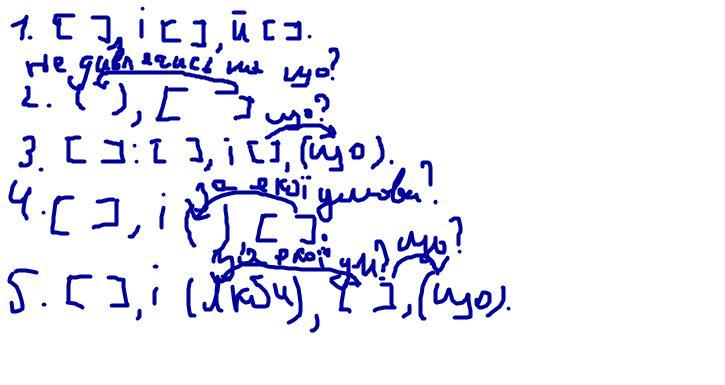 1. [ ], і [ ], й [ ].
не дивлячись на що?
2. ( ), [ ] що?
3. [ ]: [ ], і [ ], (що).
за якої умови?
4. [ ], і ( ) [ ].
за якої ум? що?
5. [ ], і (якби), [ ], (що).